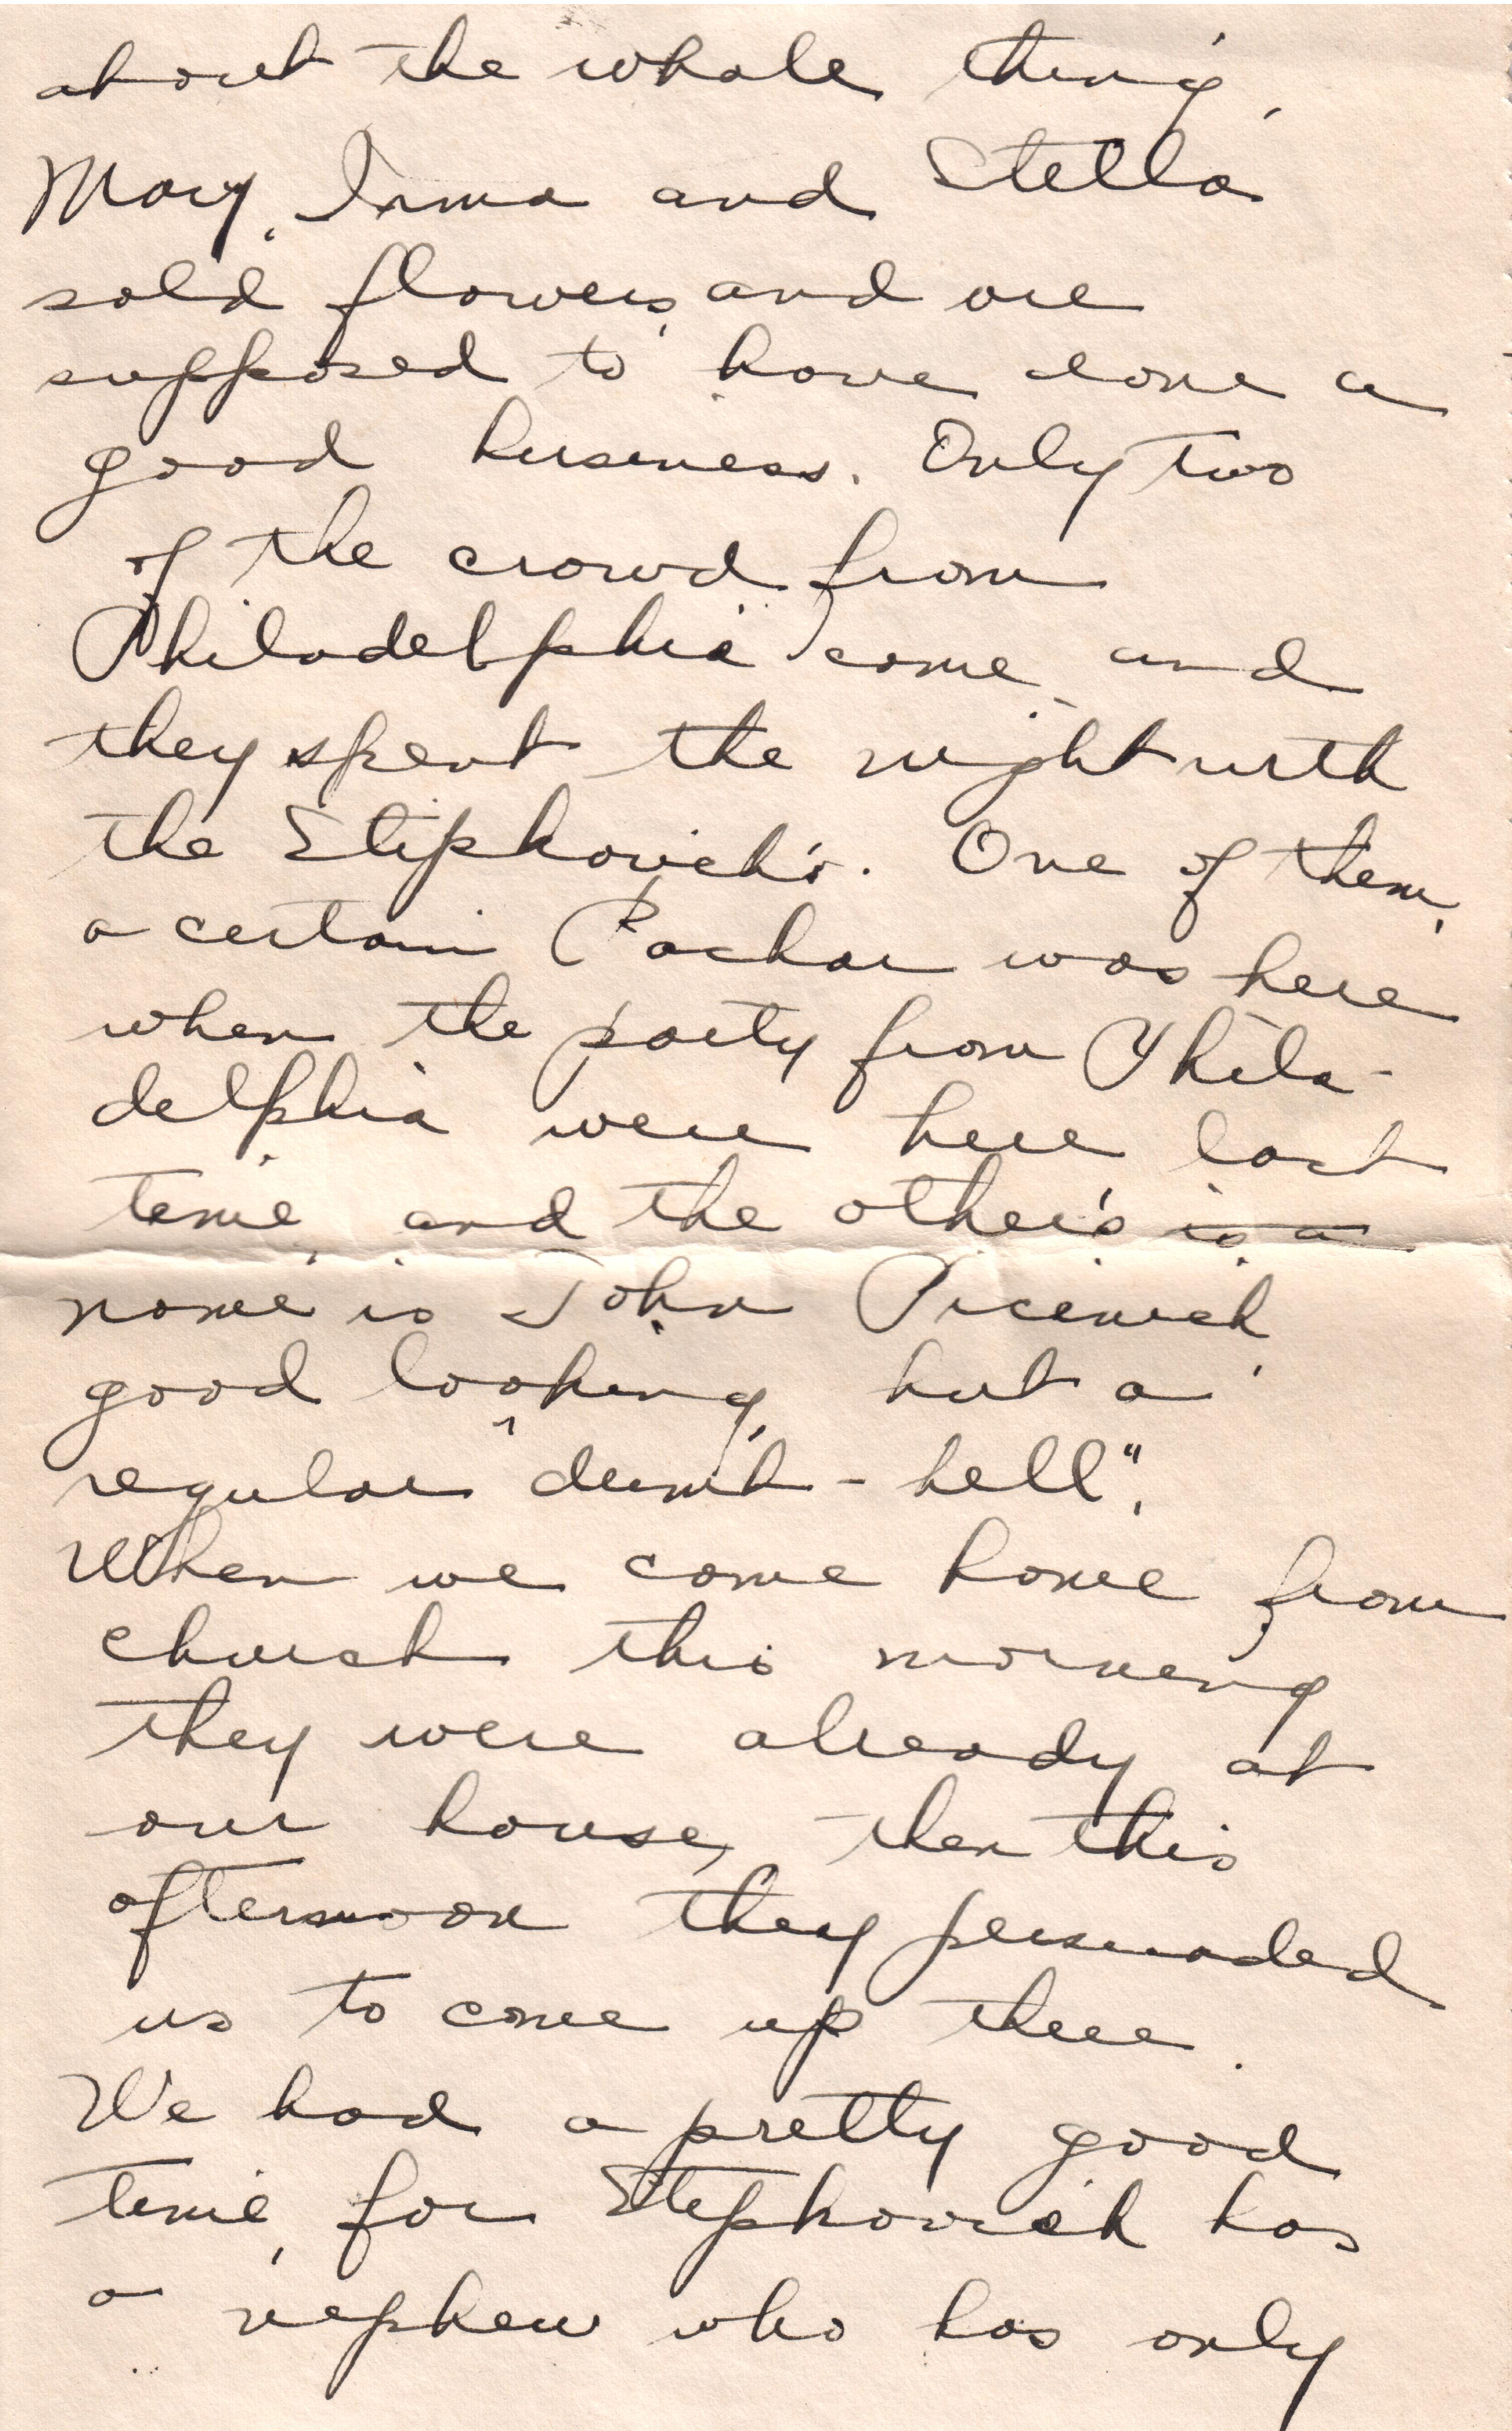 about the whole thing.
Mary, Irma and Stella
sold flowers, and are
supposed to have done a
good business. Only two
of the crowd from
Philadelphia came, and
they spent the night with
the Stipkovich's. One of them,
a certain Pachar was here
when the party from Phila-
delphia were here last
time, and the other's is a
name is John Picevich
good looking, but a
regular "dumb-bell".
When we came home from
church this morning
they were already at
our house, then this
afternoon they persuaded
us to come up there.
We had a pretty good
time, for Stipkovich has
a nephew who has only